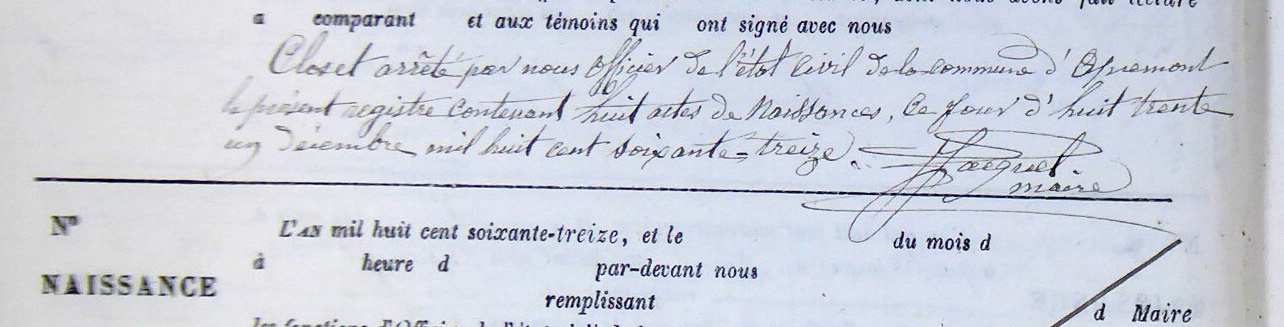 a comparant et aux témoins qui ont signé avec nous
Closet arrêté par nous Officier de l'état Civil de la commune d'Apremont
le présent registre contenant huit actes de Naissances, Ce jour d'huit trente
un Décembre mil huit cent soixante-treize.
Jacquel
maire
N° L'AN mil huit cent soixante-treize, et le du mois d
à heure d par-devant nous
NAISSANCE
remplissant
d Maire